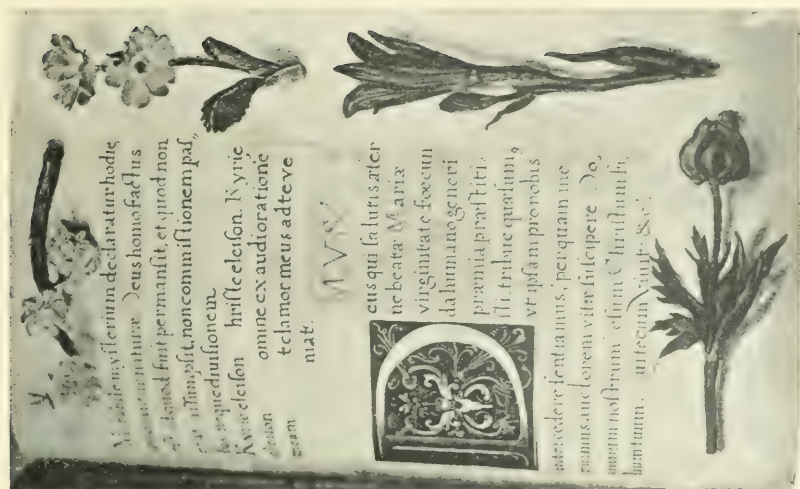 mirabile mysterium declaratur hodie
innouantur naturæ Deus homo factus
est id quod fuit permansit, et quod non
erat assumpsit, non commistionem pas„
sus neque diuisionem
Kyrie eleison hriste eleison. Kyrie
eleison omine exaudi oratione
meam t clamor meus ad te ve
niat.
eus qui salutis æter
ne beatæ Mariæ
virginitate foecun
da humano generi
præmia præstiti„
sti, tribue quæsumus,
vt ipsam pro nobis
intercedere sentiamus, per quam me
ruimus auctorem vitæ suscipere Do„
minum nostrum esum Christum fi„
lium tuum. ui tecum viuit &c: